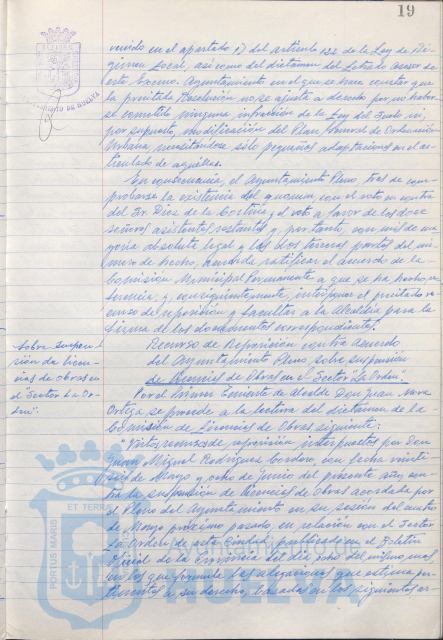 19
venido en el apartado 1) del artículo 122 de la Ley de Ré-
gimen Local, así como del dictamen del Letrado Asesor de
este Excmo. Ayuntamiento en el que se hace constar que
la precitada Resolución no se ajusta a derecho por no haber-
se cometido ninguna infracción de la Ley del Suelo ni,
por supuesto, modificación del Plan General de Ordenación
Urbana necesitándose sólo pequeñas adaptaciones en el ar-
ticulado de aquéllas.
En consecuencia, el Ayuntamiento Pleno, tras de com-
probarse la existencia del quorum, con el voto en contra
del Sr. Díaz de la Cortina y el voto a favor de los doce
señores asistentes restantes y, por tanto, con más de ma-
yoría absoluta legal y las dos terceras partes del nú-
mero de hecho, acuerda ratificar el acuerdo de la
Comisión Municipal Permanente a que se ha hecho re-
ferencia y, consiguientemente, interponer el precitado re-
curso de reposición y facultar a la Alcaldía para la
firma de los documentos correspondientes.
Sobre suspen-
sión de licen-
cias de obras en
el "Sector La Or-
den".
Recurso de Reposición contra acuerdo
del Ayuntamiento Pleno sobre suspensión
de licencias de Obras en el Sector "La Orden".
Por el Primer Teniente de Alcalde Don Juan
Ortega se procede a la lectura del dictamen de la
Comisión de Licencias de Obras siguiente:
"Vistos recursos de reposición interpuestos por Don
Juan Miguel Rodríguez Cordero, con fecha veinti
séis de Mayo y ocho de Junio del presente año, con-
tra la suspensión de licencias de obras acordada por
el Pleno del Ayuntamiento en su sesión del cuatro
de Mayo próximo pasado, en relación con el Sector
La Orden, de esta Ciudad, publicada en el Boletín
Oficial de la Provincia del día ocho del mismo mes,
en los que formula las alegaciones que estima per-
tinentes a su derecho, basadas en los siguientes ar-
AYUNTAMIENTO DE HUELVA
PORTUS MARIS
ET TERRAE
HUELVA